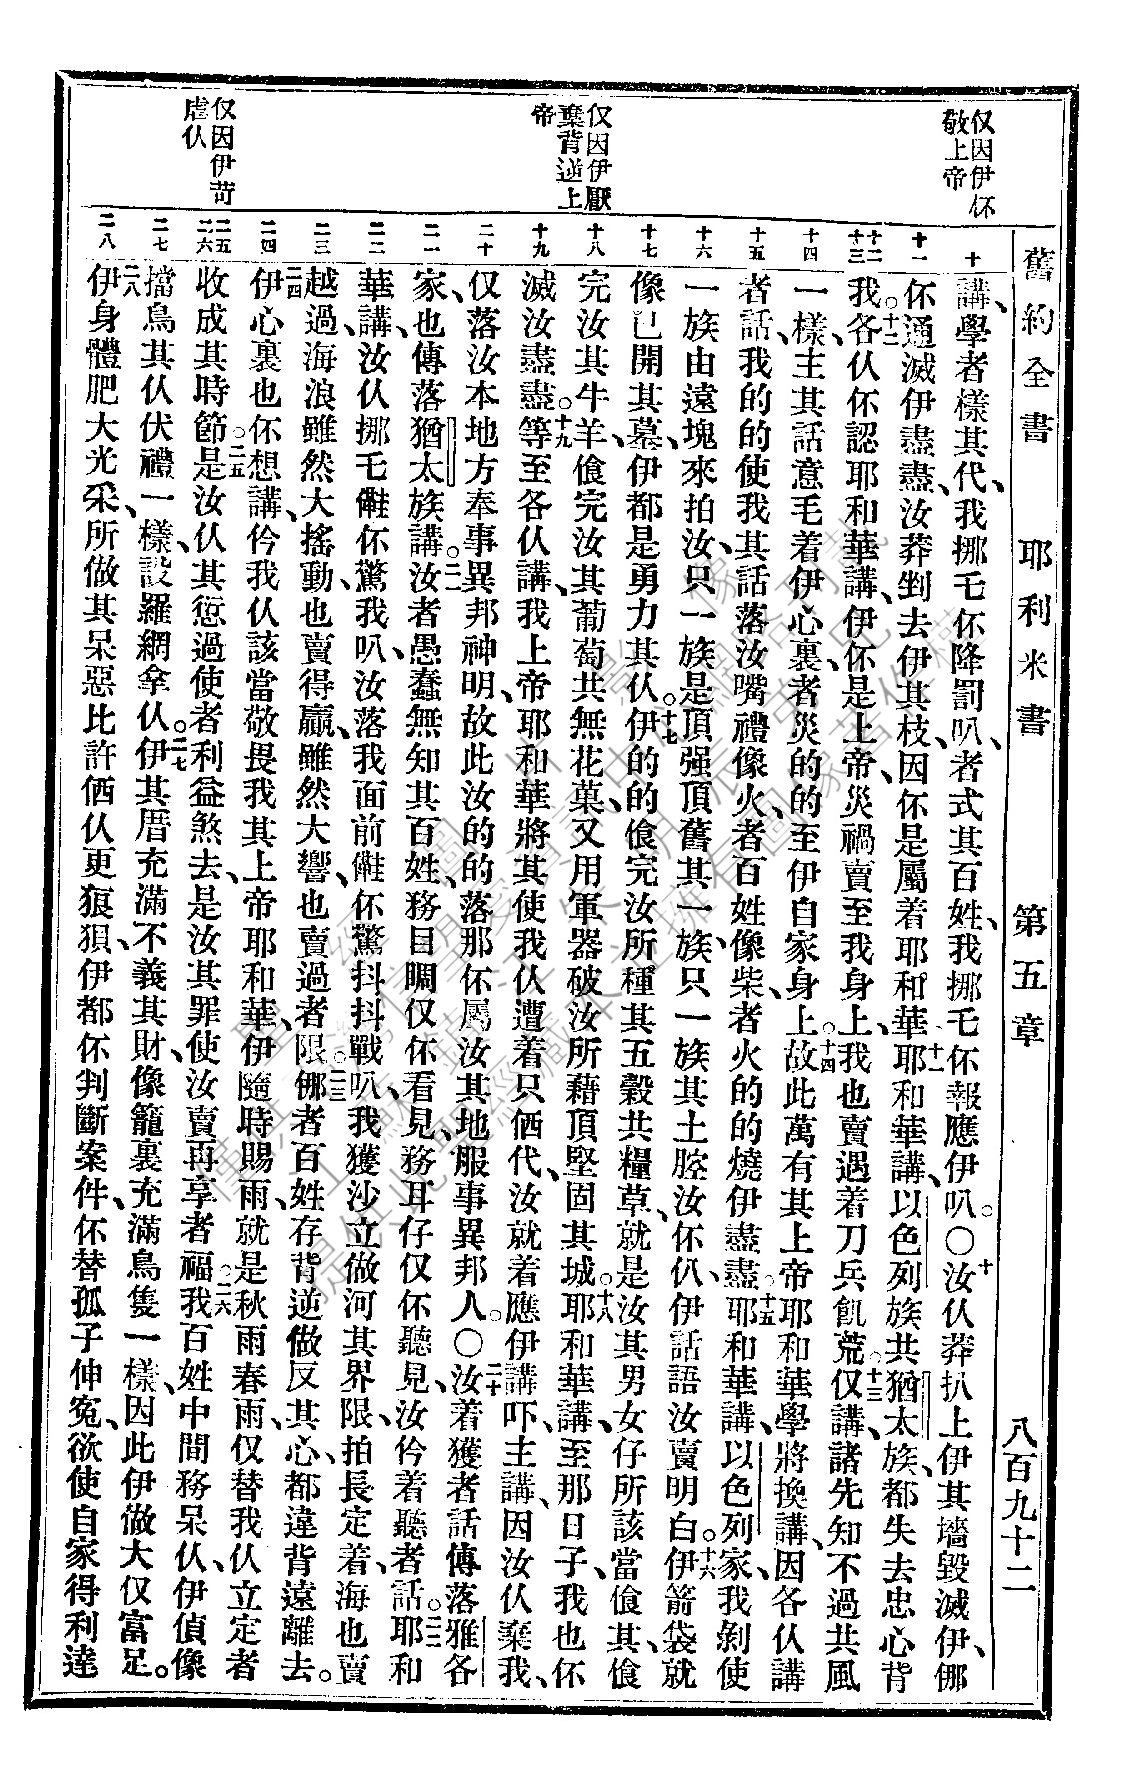 舊約全書 耶利米書 第五章 八百九十二
仅因伊伓敬上帝
仅因伊厭棄背逆上帝
仅因伊苛虐仈
十 十一 十二 十三 十四 十五 十六 十七 十八 十九 二十 二一 二二 二三 二四 二五 二六 二七 二八
講、學者樣其代、我挪乇伓降罰叭、者式其百姓、我挪乇伓報應伊叭。〇十汝仈莽扒上伊其墻毀滅伊、倻
伓通滅伊盡盡、汝莽剉去伊其枝、因伓是屬着耶和華、十一耶和華講、以色列族共猶太族、都失去忠心背
我。十二各仈伓認耶和華講、伊伓是上帝、災禍賣至我身上、我也賣遇着刀兵飢荒。十三仅講、諸先知不過共風
一樣、主其話意乇着伊心裏、者災的的至伊自家身上。十四故此萬有其上帝耶和華學將換講、因各仈講
者話、我的的使我其話落汝嘴禮像火、者百姓像柴、者火的的燒伊盡盡。十五耶和華講、以色列家、我剝使
一族由遠塊來拍汝、只一族是頂强頂舊其一族、只一族其土腔汝伓仈、伊話語汝賣明白。十六伊箭袋就
像已開其墓、伊都是勇力其仈。十七伊的的飡完汝所種其五穀共糧草、就是汝其男女仔所該當飡其、飡
完汝其牛羊、飡完汝其葡萄共無花菓、又用軍器破汝所藉頂堅固其城。十八耶和華講、至那日子、我也伓
滅汝盡盡。十九等至各仈講、我上帝耶和華將其使我仈遭着只価代、汝就着應伊講吓、主講、因汝仈棄我、
仅落汝本地方奉事異邦神明、故此汝的的落那伓屬汝其地、服事異邦人。〇二十汝着獲者話傳落雅各
家、也傳落猶太族講。二一汝者愚蠢無知其百姓、務目睭仅伓看見、務耳仔仅伓聽見、汝仱着聽者話。二二耶和
華講、汝仈挪乇儺伓驚我叭、汝落我面前儺伓驚抖抖戰叭、我獲沙立做河其界限、拍長定着、海也賣
越過、海浪雖然大搖動、也賣得贏、雖然大響、也賣過者限。二三倻者百姓存背逆做反其心、都違背遠離去。
二四伊心裏也伓想講、仱我仈該當敬畏我其上帝耶和華、伊隨時賜雨、就是秋雨春雨、仅替我仈立定者
收成其時節。二五是汝仈其愆過使者利益煞去、是汝其罪使汝賣再享者福。二六我百姓中間務呆仈、伊偵像
擋鳥其仈伏禮一樣、設羅網拿仈。二七伊其厝充滿不義其財、像籠裏充滿鳥隻一樣、因此伊做大仅富足。
二八伊身體肥大光采、所做其呆惡比許価仈更狼狽、伊都伓判斷案件、伓替孤子伸冤、欲使自家得利達